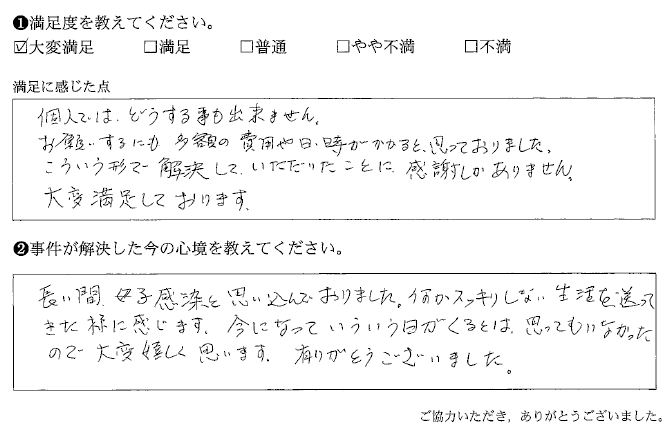 ❶満足度を教えてください。
☑大変満足 □満足 □普通 □やや不満 □不満
満足に感じた点
個人では、どうする事も出来ません。
お願いするにも 多額の費用や日時がかかると、思っておりました。
こういう形で解決して、いただけたことに、感謝しかありません。
大変満足しております。
❷事件が解決した今の心境を教えてください。
長い間、母子感染と思い込んでおりました。何かスッキリしない生活を送って
きた様に感じます。今になって いういう日がくるとは、思ってもいなかった
ので大変嬉しく思います。有りがとうございました。
ご協力いただき，ありがとうございました。